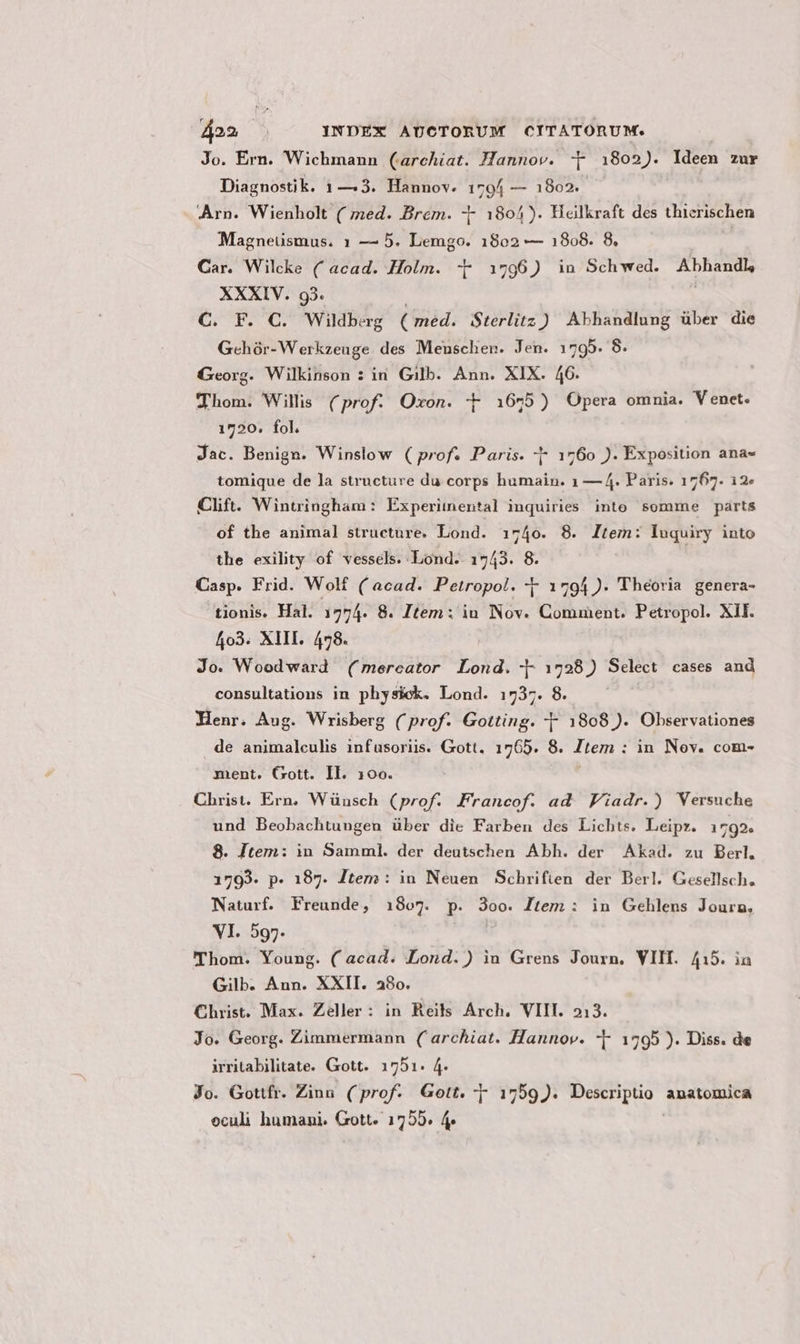 422 INDEX AUCTORUM CITATORUM.
Jo. Ern. Wichmann (archiat. Hannov. † 1802). Ideen zur
Diagnostik. 1—3. Hannov. 1794 — 1802.
Arn. Wienholt (med. Brem. † 1804). Heilkraft des thierischen
Magnetismus. 1 — 5. Lemgo. 1802 — 1808. 8.
Car. Wilcke (acad. Holm. † 1796) in Schwed. Abhandl.
XXXIV. 93.
C. F. C. Wildberg (med. Sterlitz) Abhandlung über die
Gehör-Werkzeuge des Menschen. Jen. 1795. 8.
Georg. Wilkinson : in Gilb. Ann. XIX. 46.
Thom. Willis (prof. Oxon. † 1675) Opera omnia. Venet.
1720. fol.
Jac. Benign. Winslow (prof. Paris. † 1760). Exposition ana-
tomique de la structure du corps humain. 1—4. Paris. 1767. 12.
Clift. Wintringham: Experimental inquiries into somme parts
of the animal structure. Lond. 1740. 8. Item: Inquiry into
the exility of vessels. Lond. 1743. 8.
Casp. Frid. Wolf (acad. Petropol. † 1794). Theoria genera-
tionis. Hal. 1774. 8. Item: in Nov. Comment. Petropol. XII.
403. XIII. 478.
Jo. Woodward (mercator Lond. † 1728) Select cases and
consultations in physick. Lond. 1737. 8.
Henr. Aug. Wrisberg (prof. Gotting. † 1808). Observationes
de animalculis infusoriis. Gott. 1765. 8. Item : in Nov. com-
ment. Gott. II. 100.
Christ. Ern. Wünsch (prof. Francof. ad Viadr.) Versuche
und Beobachtungen über die Farben des Lichts. Leipz. 1792.
8. Item: in Samml. der deutschen Abh. der Akad. zu Berl.
1793. p. 187. Item: in Neuen Schriften der Berl. Gesellsch.
Naturf. Freunde, 1807. p. 300. Item: in Gehlens Journ.
VI. 597.
Thom. Young. (acad. Lond.) in Grens Journ. VIII. 415. in
Gilb. Ann. XXII. 280.
Christ. Max. Zeller: in Reils Arch. VIII. 213.
Jo. Georg. Zimmermann (archiat. Hannov. † 1795). Diss. de
irritabilitate. Gott. 1751. 4.
Jo. Gottfr. Zinn (prof. Gott. † 1759). Descriptio anatomica
oculi humani. Gott. 1755. 4.